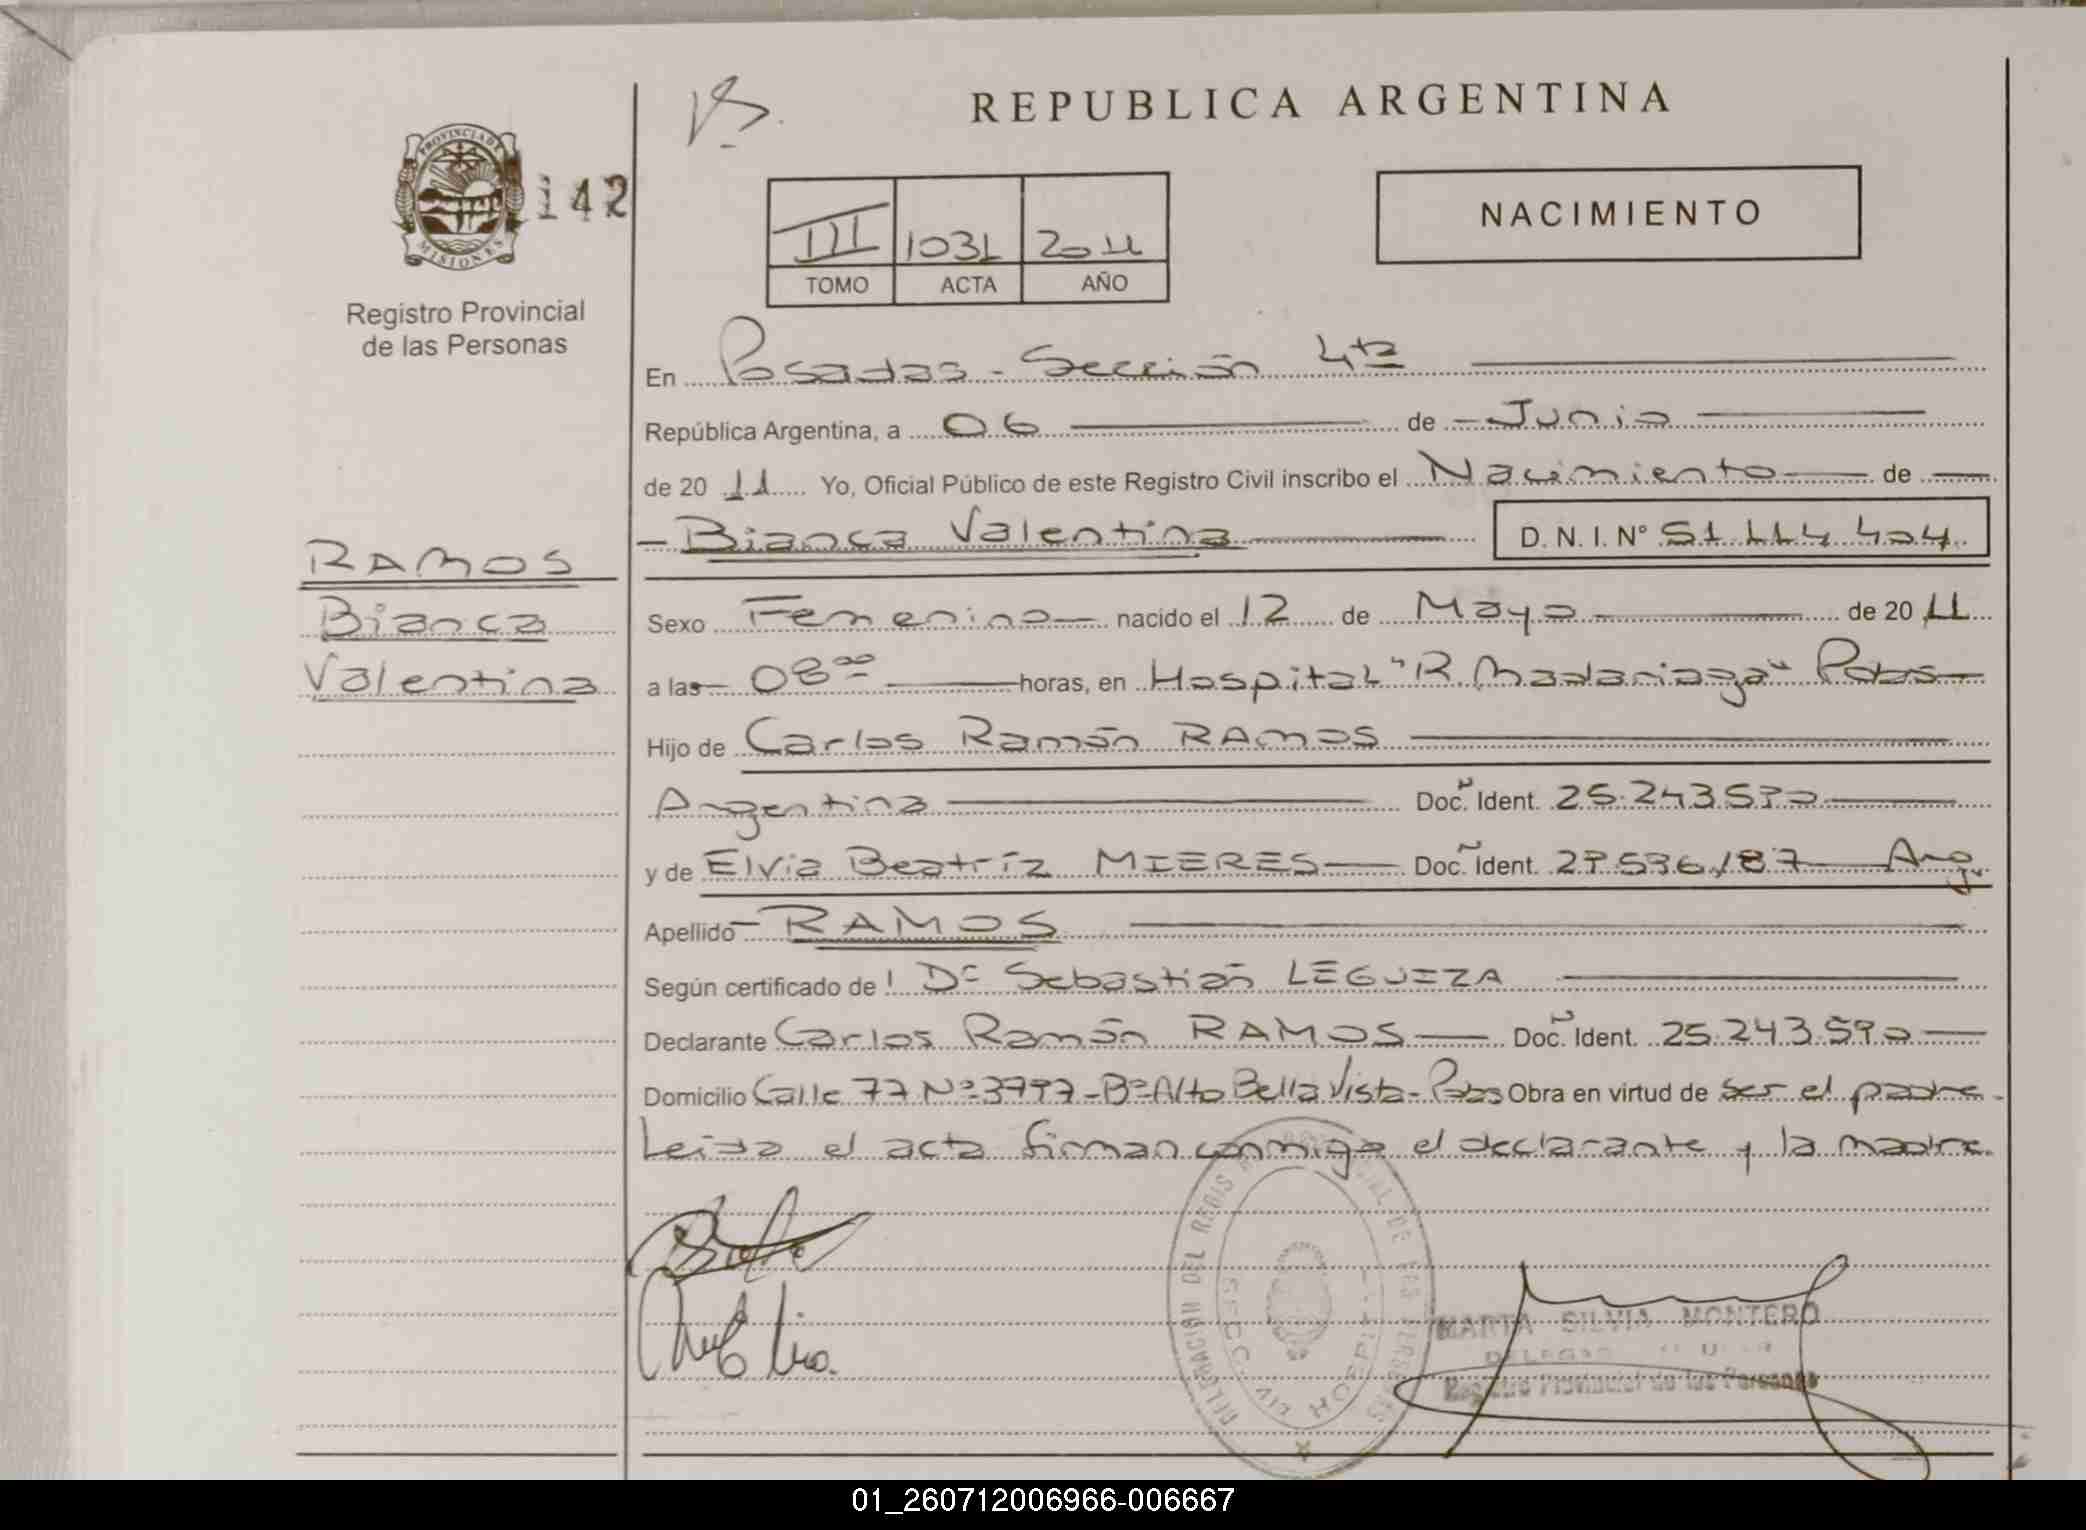 REPUBLICA ARGENTINA
PROVINCIA DE MISIONES
142
Registro Provincial
de las Personas
NACIMIENTO
III 1031 2011
TOMO ACTA AÑO
En Posadas - Sección 4ta
República Argentina, a 06 de Junio
de 2011 Yo, Oficial Público de este Registro Civil inscribo el Nacimiento de
Bianca Valentina D.N.I. Nº 51.114.404.
RAMOS
Bianca
Valentina
Sexo Femenino nacido el 12 de Mayo de 2011
a las 08 00 horas, en Hospital "R. Madariaga" Pdas
Hijo de Carlos Ramón RAMOS
Argentina Doc. Ident. 25.243.590
y de Elvia Beatríz MIERES Doc. Ident. Arg.
Apellido RAMOS
Según certificado de Dr Sebastián LEGUIZA
Declarante Carlos Ramón RAMOS Doc. Ident. 25.243.590
Domicilio Calle 77 Nº 3797 - Bº Alto Bella Vista - Pdas Obra en virtud de ser el padre.
Leida el acta firman conmigo el declarante y la madre.
MARTA SILVIA MONTERO
Registro Provincial de las Personas
01_260712006966-006667